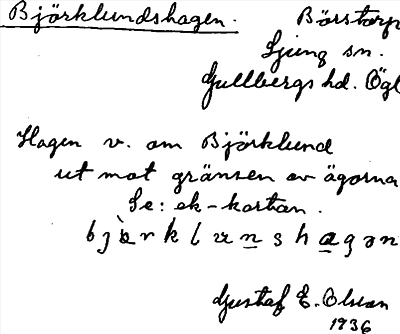 Björklundshagen. Börstorp
Ljung sn.
Gullbergs hd. Ögl
Hagen v. om Björklund
ut mot gränsen av ägorna
Se: ek-kartan.
bjö̀rklunshagən
Gustaf E. Olsson
1936